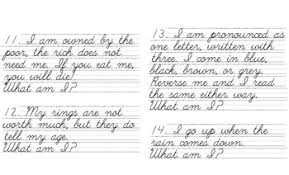 11. I am owned by the
poor, the rich does not
need me. If you eat me,
you will die!
What am I?
12. My rings are not
worth much, but they do
tell my age.
What am I?
13. I am pronounced as
one letter, written with
three. I come in blue,
black, brown, or grey.
Reverse me and I read
the same either way.
What am I?
14. I go up when the
rain comes down.
What am I?